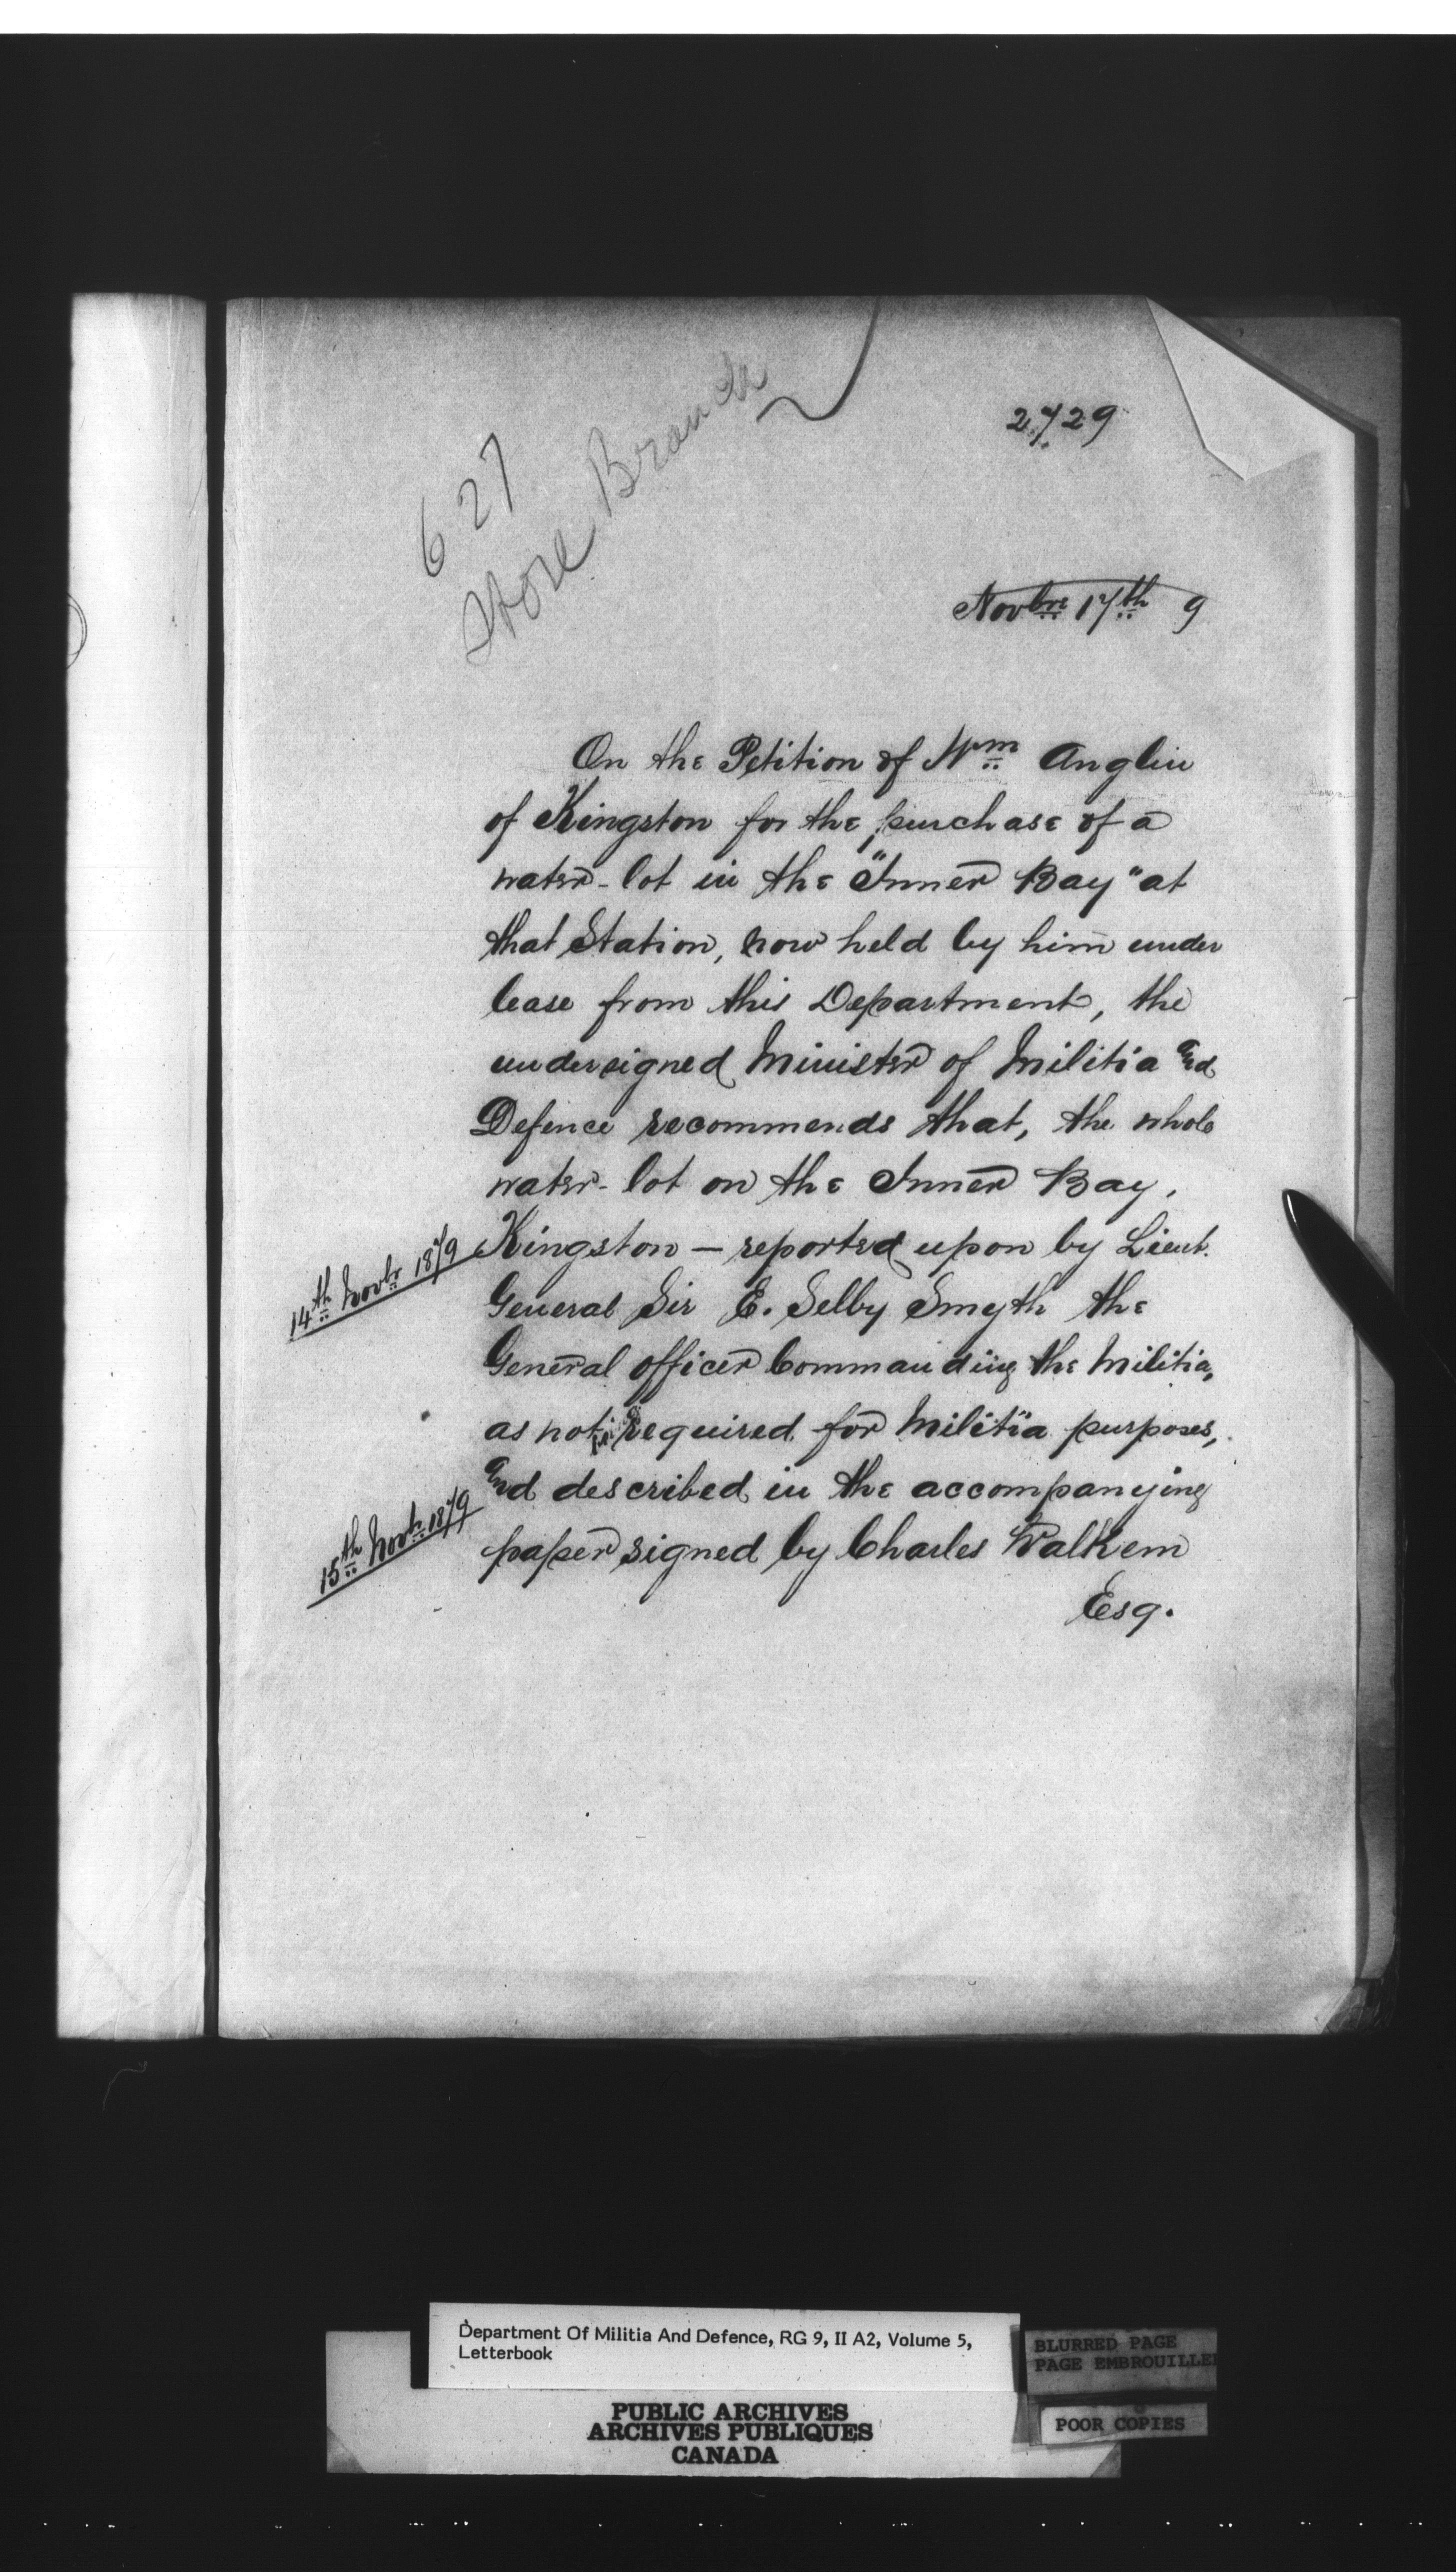 627
Store Branch
2729
Novbre 17th 9
On the Petition of Wm Anglin
of Kingston for the purchase of a
water-lot in the "Inner Bay" at
that Station, now held by him under
lease from this Department, the
undersigned Minister of Militia and
Defence recommends that, the whole
water-lot on the Inner Bay,
14th Novbr 1879
Kingston — reported upon by Lieut.
General Sir E. Selby Smyth the
General officer Commanding the Militia,
as not required for Militia purposes,
15th Novbr 1879
and described in the accompanying
paper signed by Charles Walkem
Esq.
Department Of Militia And Defence, RG 9, II A2, Volume 5,
Letterbook
BLURRED PAGE
PAGE EMBROUILLEE
POOR COPIES
PUBLIC ARCHIVES
ARCHIVES PUBLIQUES
CANADA